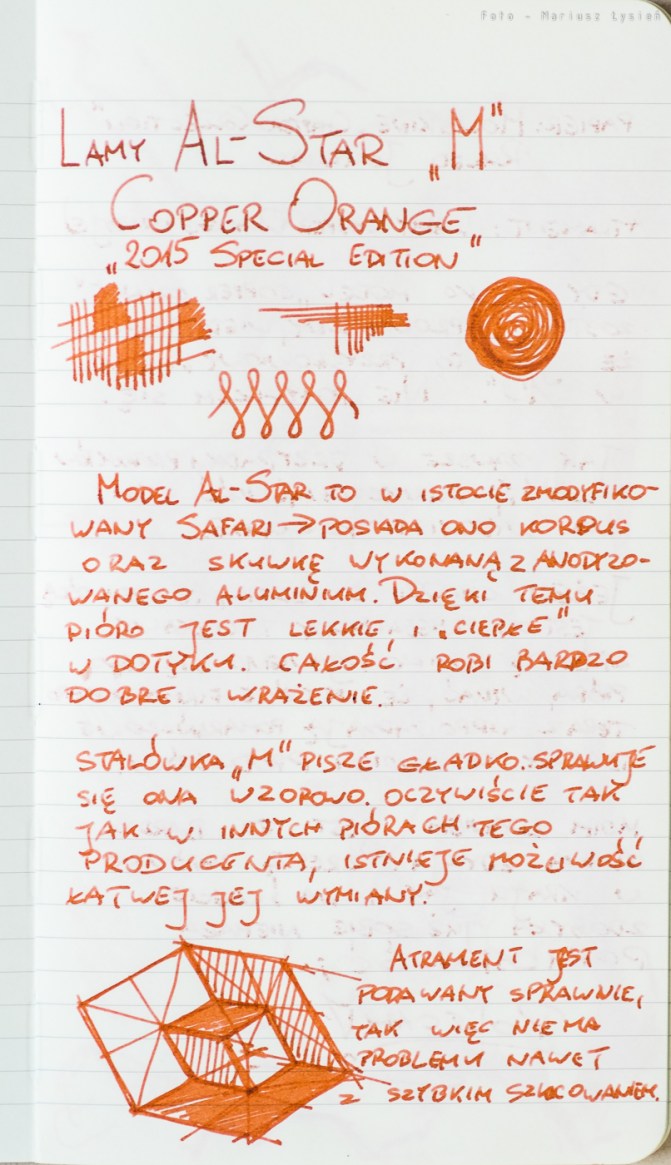 Foto - Mariusz Łysień
LAMY AL-STAR „M"
COPPER ORANGE
„2015 SPECIAL EDITION"
MODEL AL-STAR TO W ISTOCIE ZMODYFIKO-
WANY SAFARI → POSIADA ONO KORPUS
ORAZ SKUWKĘ WYKONANĄ Z ANODYZO-
WANEGO ALUMINIUM. DZIĘKI TEMU
PIÓRO JEST LEKKIE I „CIEPŁE"
W DOTYKU. CAŁOŚĆ ROBI BARDZO
DOBRE WRAŻENIE.
STALÓWKA „M" PISZE GŁADKO. SPRAWUJE
SIĘ ONA WZOROWO. OCZYWIŚCIE TAK
JAK W INNYCH PIÓRACH TEGO
PRODUCENTA, ISTNIEJE MOŻLIWOŚĆ
ŁATWEJ JEJ WYMIANY.
ATRAMENT JEST
PODAWANY SPRAWNIE,
TAK WIĘC NIE MA
PROBLEMU NAWET
Z SZYBKIM SZKICOWANIEM.